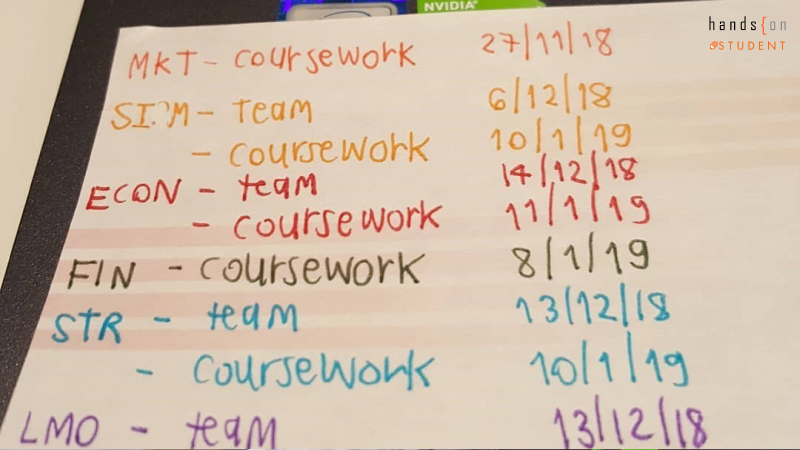 NVIDIA
hands{on
STUDENT
MKT - coursework 27/11/18
- team 6/12/18
- coursework 10/1/19
ECON - team 14/12/18
- coursework 11/1/19
FIN - coursework 8/1/19
STR - team 13/12/18
- coursework 10/1/19
LMO - team 13/12/18